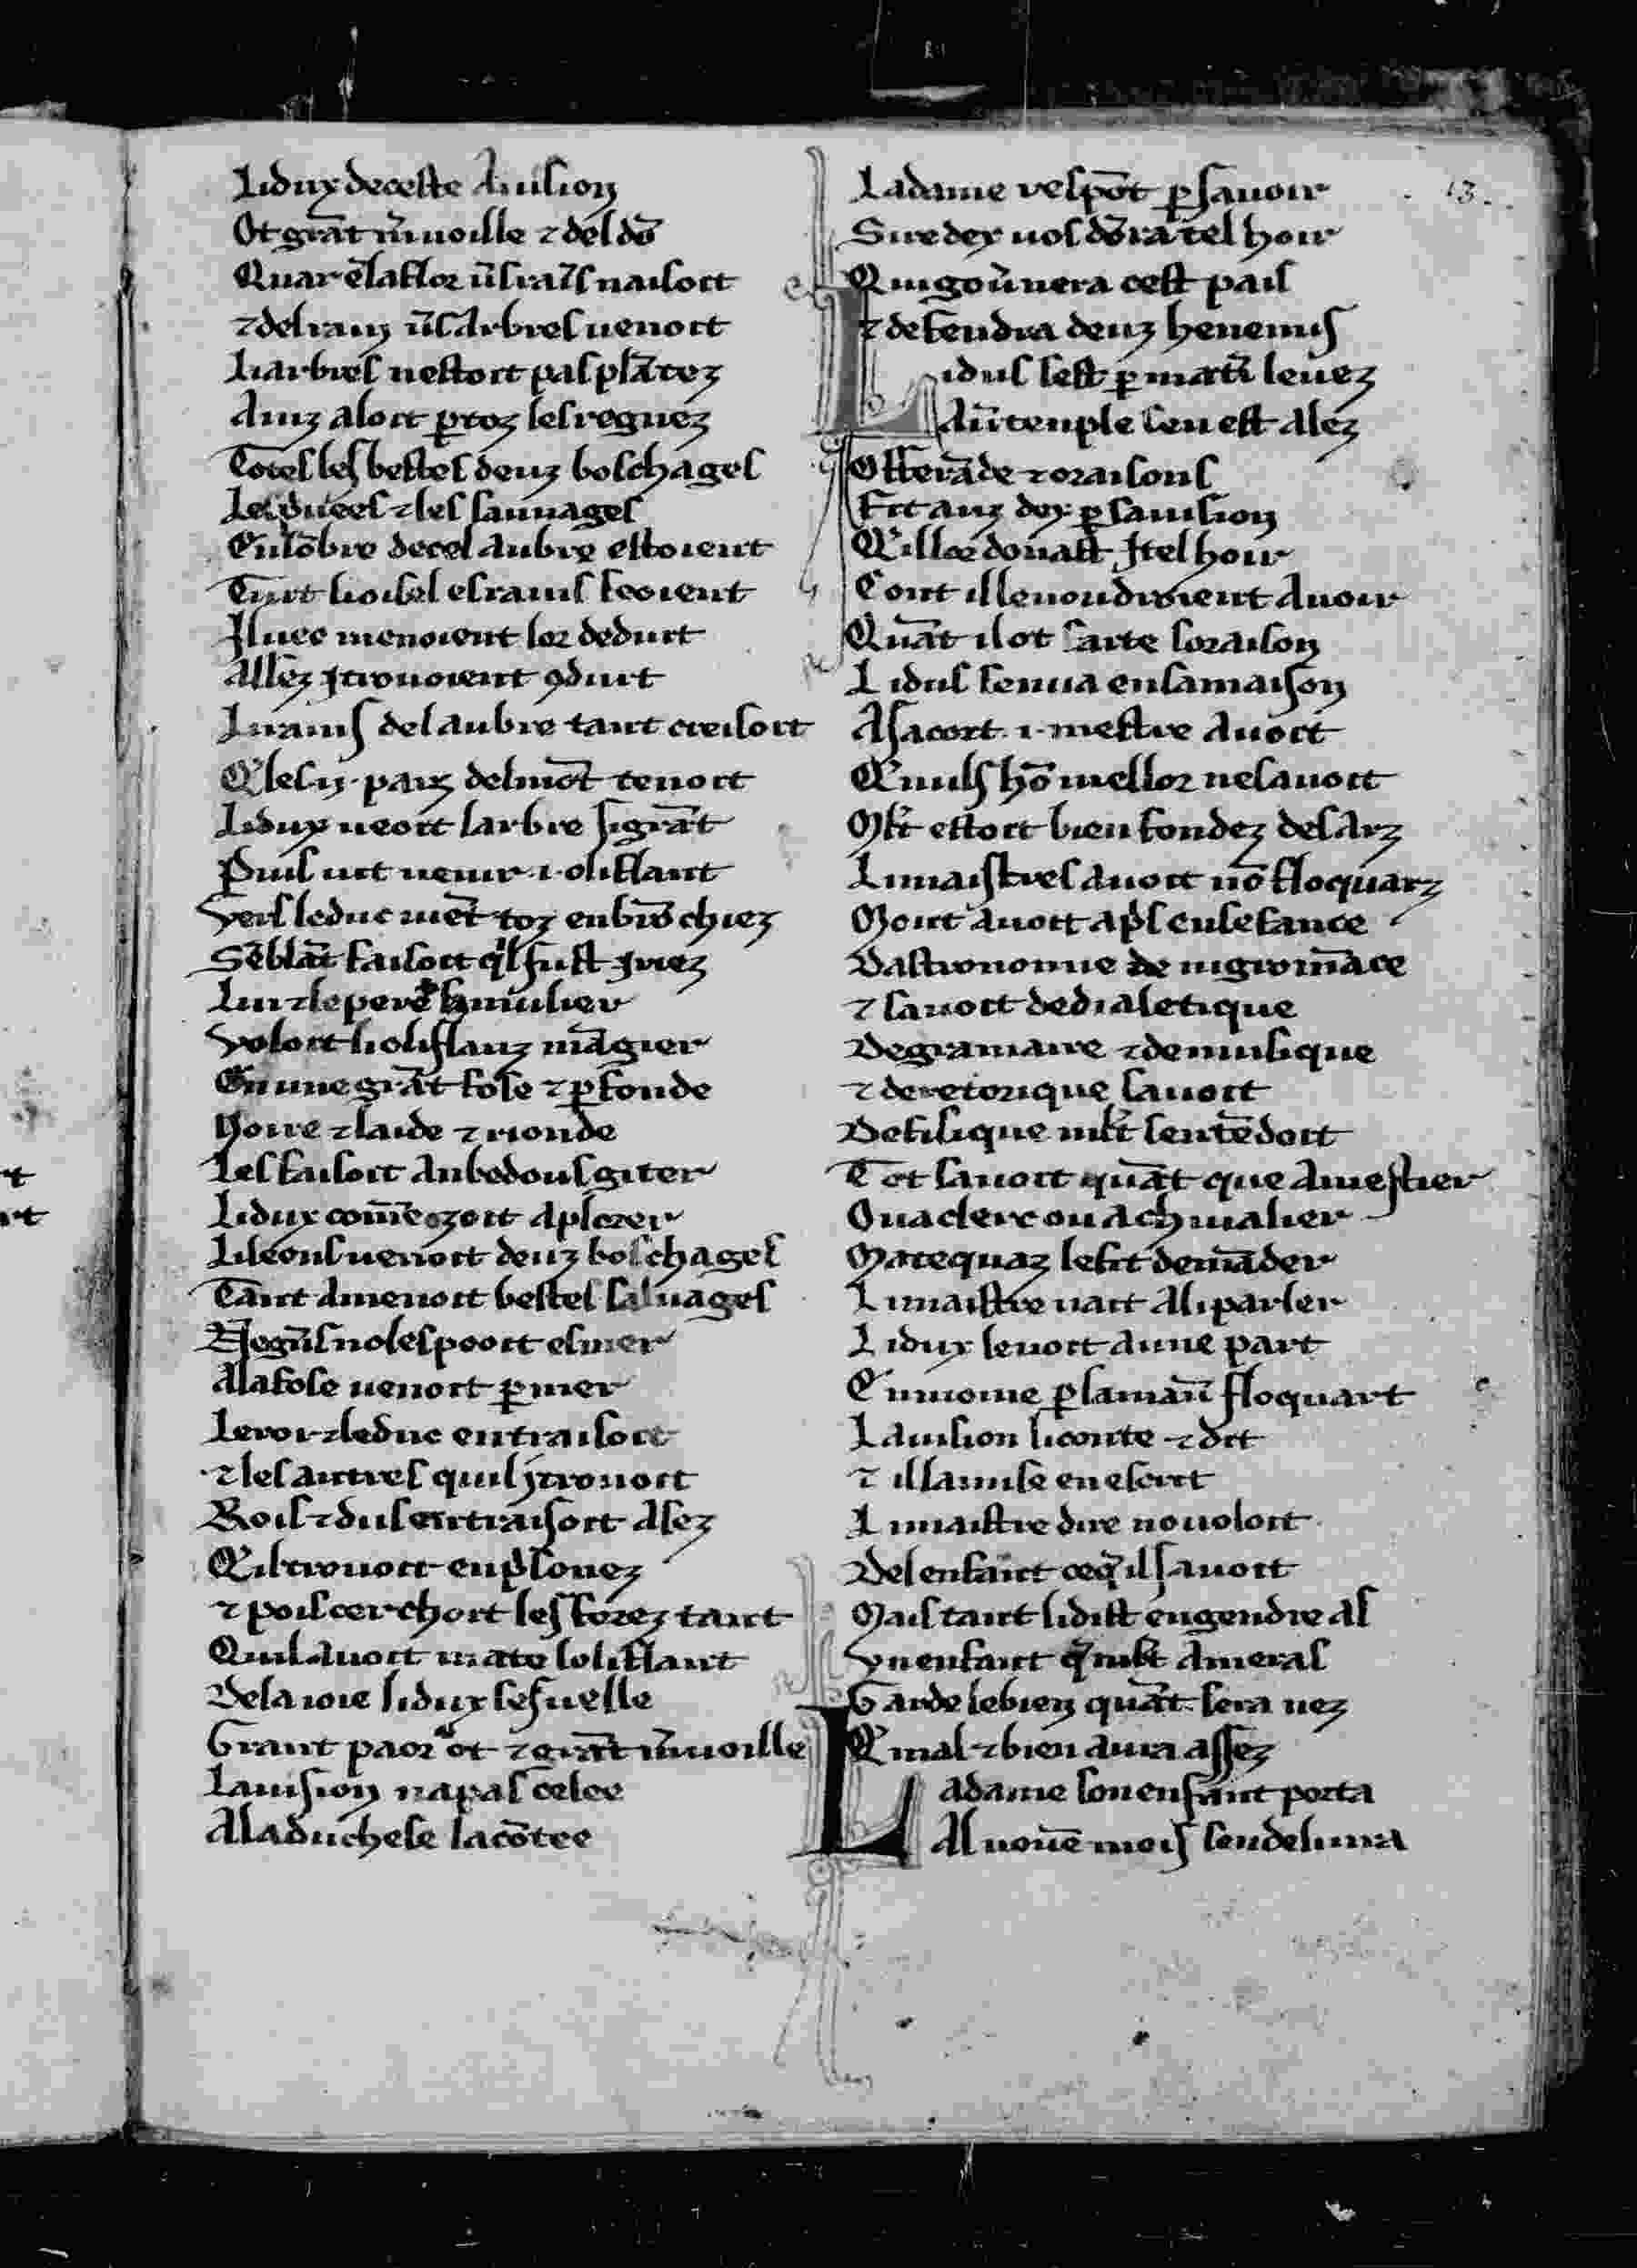 Li dux de ceste Avision
Ot grāt m̄voille ⁊ del dō
Quar ē la flor ūs raīs naisoit
⁊ del rainz ūs Arbres uenoit
Li arbres nestoit pas plātez
Ainz aloit p̱ toz les regnez
Totes les bestes denz boschages
Les puees ⁊ les sauuages
En lōbre de cel aubre estoient
Tuit li oisel es rains seoient
Iluec menoient lor deduit
Assez itrouoient ꝯduit
Li rains del aubre tant creisoit
Q̄ les ij. parz del mōt tenoit
Li dux ueoit larbre si grāt
Puis uit uenir .i. olifant
Vers le duc uiēt toz enbrōchiez
Sēblāt faisoit q̄l fust iriez
Lui ⁊ le pere ⁊ la muilier
Voloit li olifanz māgier
En une grāt fose ⁊ p̱fonde
Noire ⁊ laide ⁊ rionde
Les faisoit anbedous giter
Li dux comēczoit a plorer
Li leons uenoit denz boschages
Tant amenoit bestes saluages
Negūs no les pooit esmer
A la fose uenoit p̱ mer
Le roi ⁊ le duc en traisoit
⁊ les autres quil itrouoit
Rois ⁊ dus en traisoit asez
Q̄il trouoit enpsonez
⁊ pois cerchoit les forez tant
Quil auoit mate lolifant
De la ioie li dux sesuelle
Grant paor ot ⁊ grāt m̄uoille
Lauision na pas celee
A la duchese la cōtee
La dame respōt p̱ sauoir
Sire dex uos dōra tel hoir
Qui goūnera cest pais
⁊ defendra denz henemis
Li dus sest p̱ matī leuez
Au tenple sen est alez
Offerāde ⁊ oraisons
Fit anz dex p̱ sauision
Q̄ il loe donast itel hoir
Cont il seuoudroient auoir
Quāt il ot faite soraison
Li dus senua en sa maison
A sa cort .i. mestre auoit
Q̄ nuls hō mellor ne sauoit
Mlt estoit bien fondez des arz
Li maistres auoit nō floquarz
Mout auoit apſ en sefance
Dastronomie de nigromāce
⁊ sauoit de dialetique
De gramaire ⁊ de musique
⁊ de retorique sauoit
De fisique mlt sentēdoit
Tot sauoit quāt que a mestier
Ou a clerc ou a chiualier
Macequaz le fit demāder
Li maistre uait a li parler
Li dux se uoit a une part
Enmoine p̱ la main floquart
Lauision li conte ⁊ dit
⁊ il la mise en escrit
Li maistre dire no uoloit
Del enfant ce q̄ il sauoit
Mais tant li dist engendre as
Vn enfant q̄ mlt ameras
Garde le bien quāt sera nez
Q̄ mal ⁊ bien aura assez
La dame son enfant porta
Al nouē mois sen deliura
13.